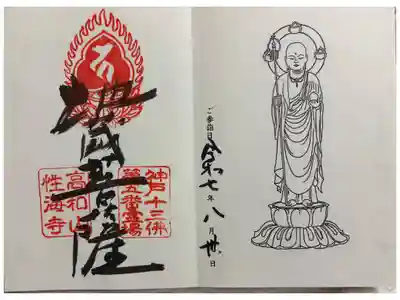 ご参詣日 令和七年八月卅日
地蔵菩薩
神戸十三佛
第五番霊場
高和山
性海寺